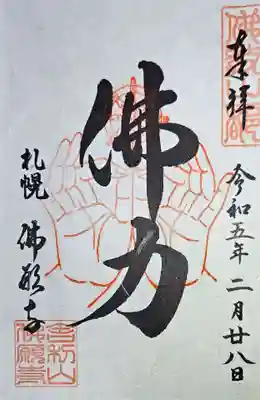 奉拝
令和五年二月廿八日
佛力
札幌 佛願寺